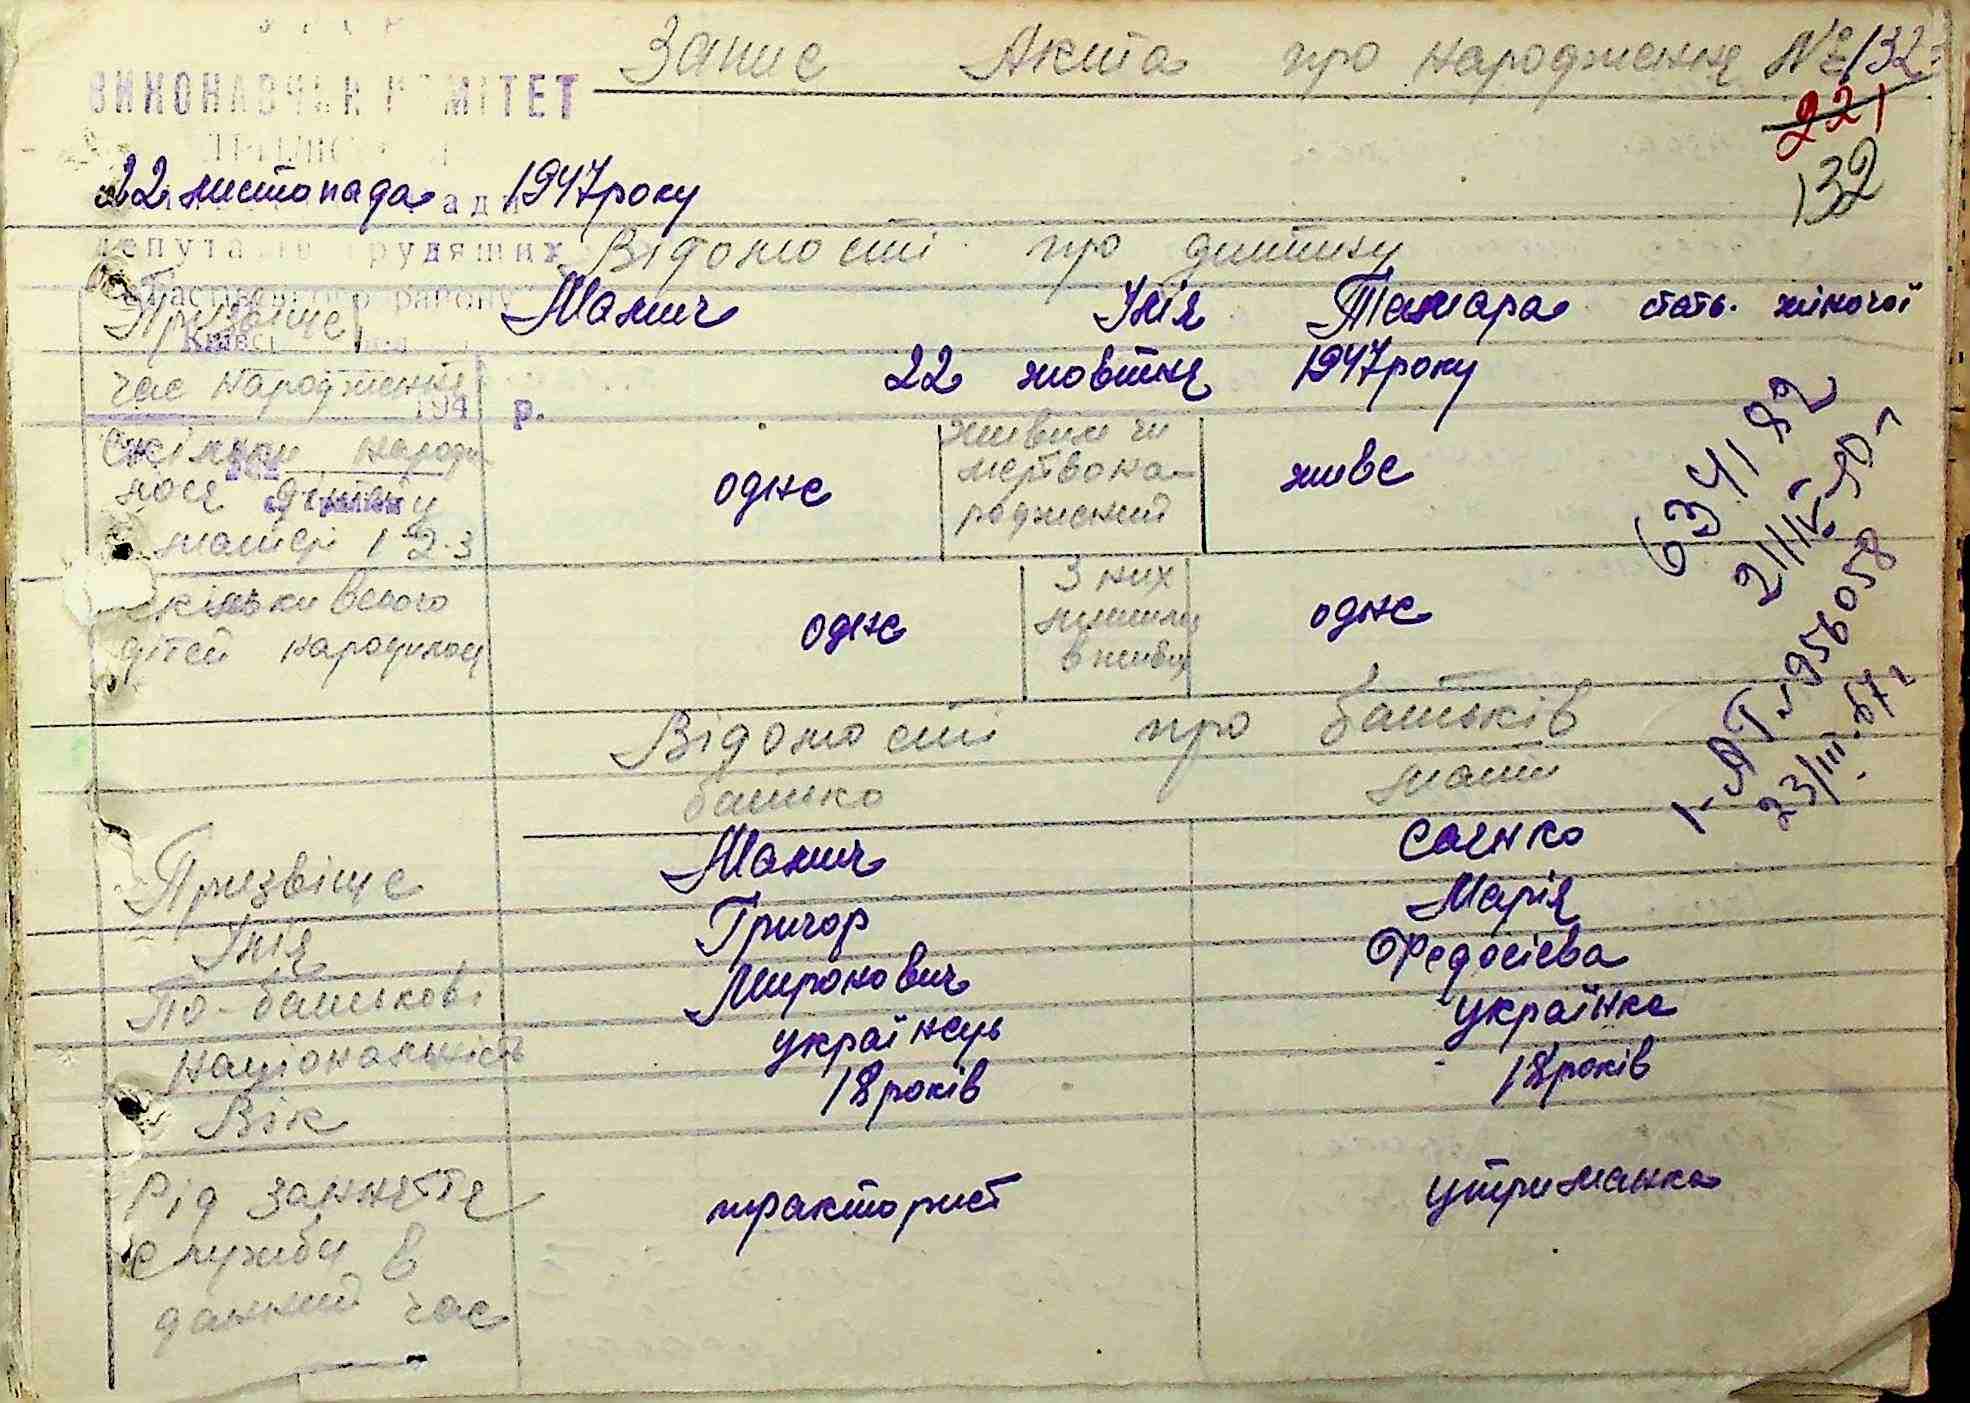 Запис Акта про народження №132
ВИКОНАВЧИЙ КОМІТЕТ
221
132
22 листопада 1947 року
ради
депутатів трудящих
Відомості про дитину
Фастівського району
Призвіще Манич Імя Тамара стать. жіночої
Київс
час народження 22 жовтня 1947 року
194 р.
Скільки народи
лося дітей у
матері 1 2.3
одне
живим чи
мертвона-
роджений
живе
скільки всього
дітей народилось
одне
З них
лишили
в живих
одне
634182
21/IV-50 г
1-АТ № 956058
23/III.67 г.
Відомості про батьків
батько мати
Призвіще Манич Саєнко
Імя Григор Марія
По-батькові Миронович Федосієва
Національність українець українка
Вік 18 років 18 років
Рід заняття
служби в
данний час
тракторист утриманка